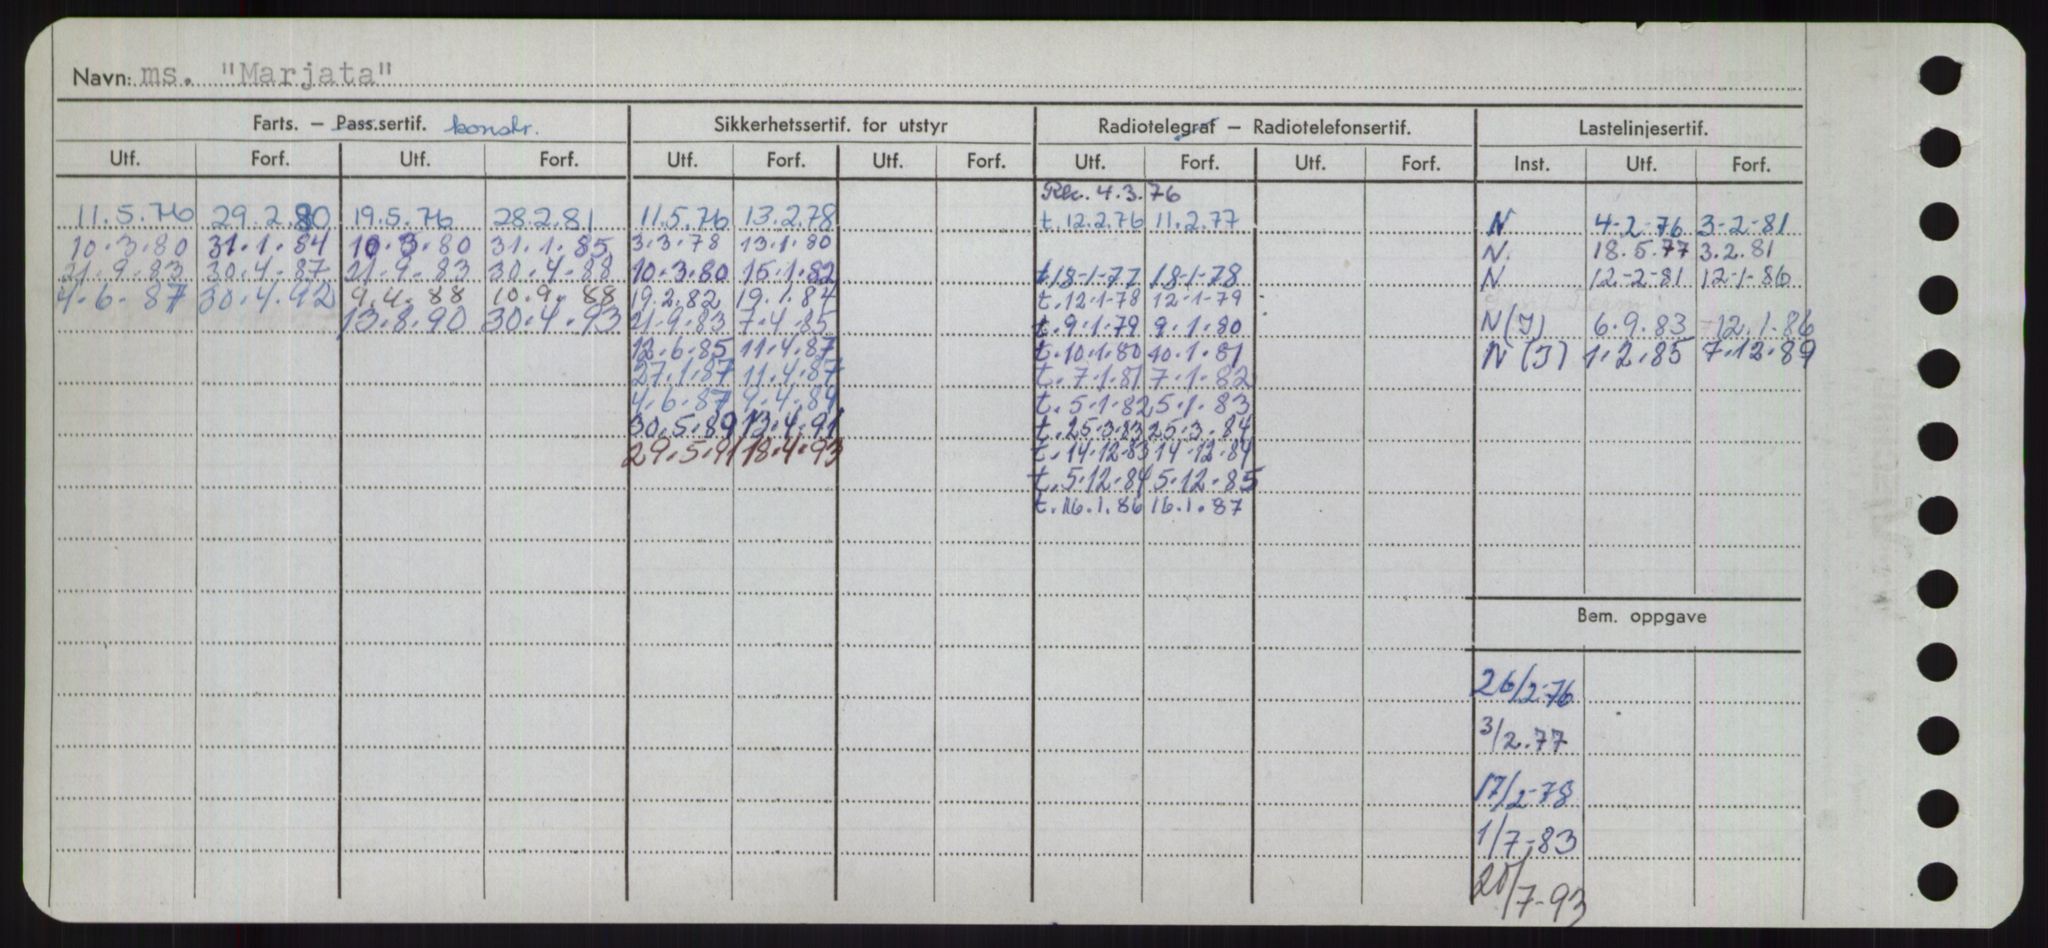 Navn: ms. "Marjata"
Farts. – Pass.sertif. konstr. Sikkerhetssertif. for utstyr Radiotelegraf – Radiotelefonsertif. Lastelinjesertif.
Utf. Forf. Utf. Forf. Utf. Forf. Utf. Forf. Utf. Forf. Utf. Forf. Inst. Utf. Forf.
Rec. 4.3.76
11.5.76 29.2.80 19.5.76 28.2.81 11.5.76 13.2.78 t.12.2.76 11.2.77 N 4-2-76 3-2-81
10.3.80 31.1.84 10.3.80 31.1.85 3.3.78 13.1.80 N. 18.5.77 3.2.81
21.9.83 30.4.87 21.9.83 30.4.88 10.3.80 15.1.82 t18-1-77 18-1-78 N 12-2-81 12-1-86
4.6.87 30.4.92 9.4.88 10.9.88 19.2.82 19.1.84 t.12-1-78 12-1-79
13.8.90 30.4.93 21.9.83 7.4.85 t.9.1.79 9.1.80 N(I) 6.9.83 12.1.86
12.6.85 11.4.87 t.10.1.80 10.1.81 N(I) 1.2.85 7.12.89
27.1.87 11.4.87 t.7.1.81 7.1.82
4.6.87 9.4.89 t.5.1.82 5.1.83
30.5.89 13.4.91 t.25.3.83 25.3.84
29.5.91 18.4.93 t.14.12.83 14-12.84
t.5.12.84 5.12.85
t.16.1.86 16.1.87
Bem. oppgave
26/2-76
3/2.77
17/2-78
1/7-83
20/7-93